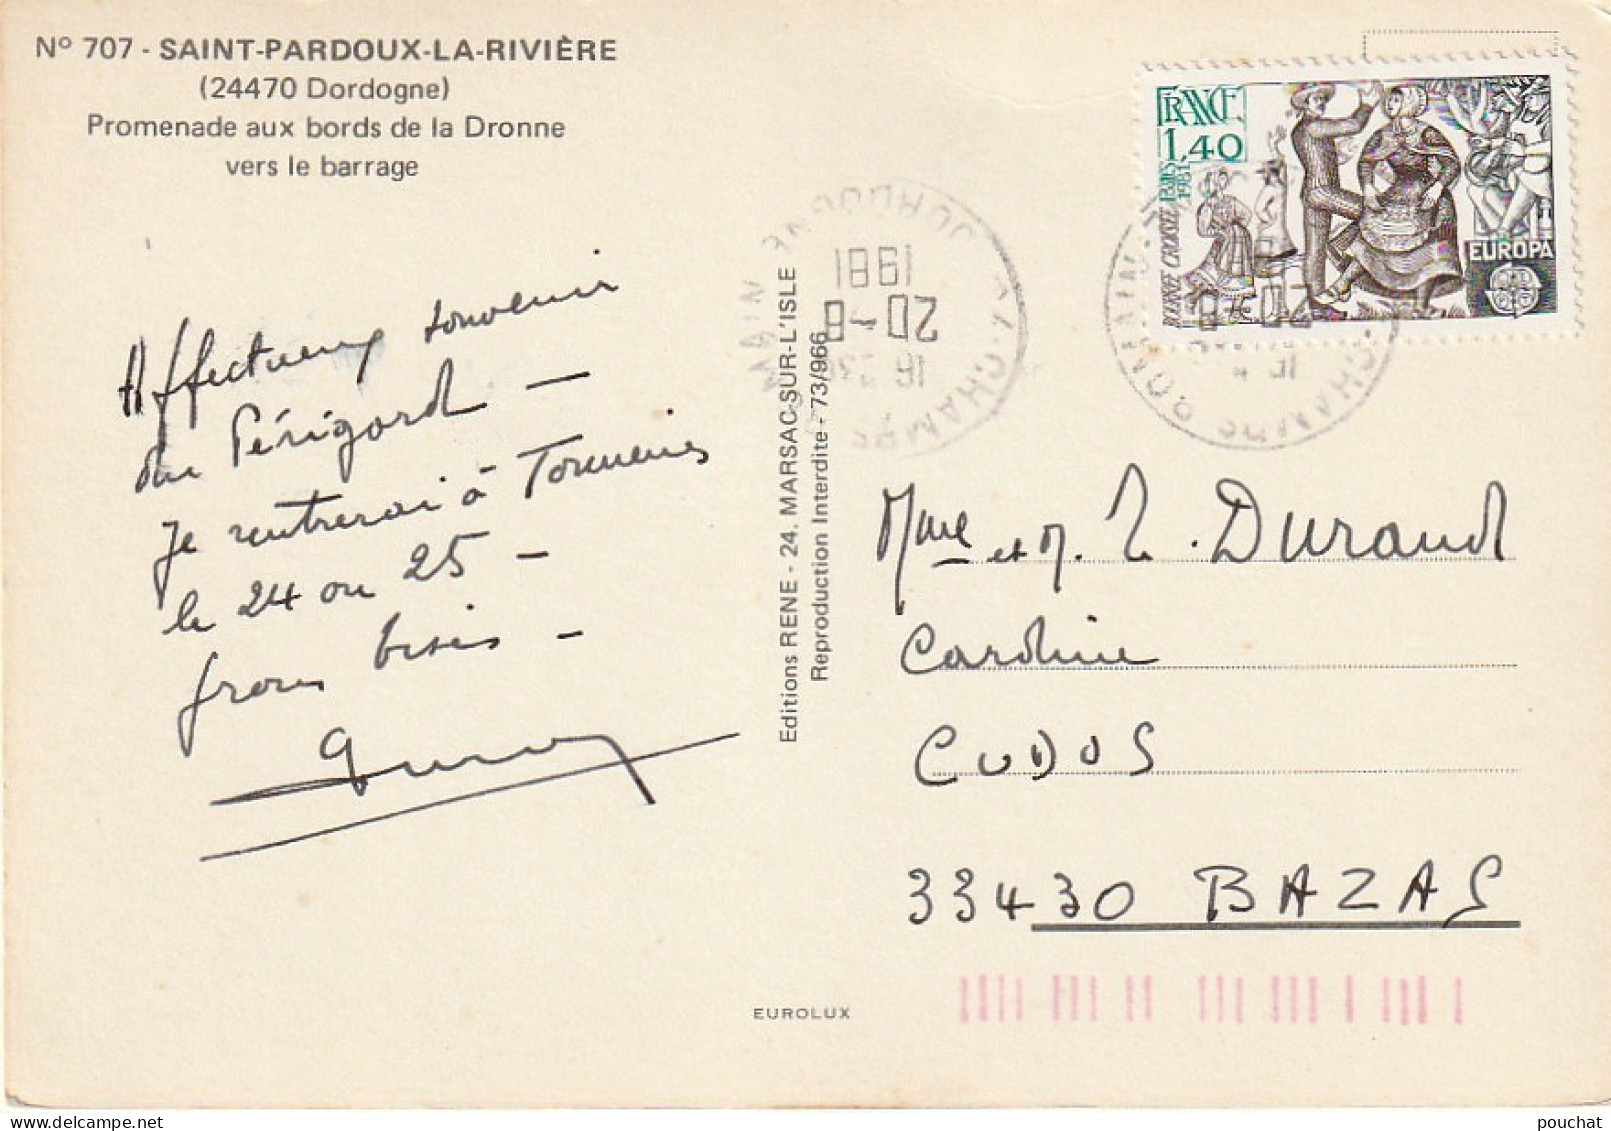 N° 707 - SAINT-PARDOUX-LA-RIVIÈRE
(24470 Dordogne)
Promenade aux bords de la Dronne
vers le barrage
Affectueux souvenir
du Périgord —
Je rentrerai à
le 24 ou 25 —
gros bisis —
Editions RENE - 24. MARSAC-SUR-L'ISLE
Reproduction Interdite - 73/966
EUROLUX
FRANCE
1,40
BOURRÉE CROISÉE
1981
EUROPA
16
20 - 8
1981
CHAMPS
DORDOGNE
Mme et M. Durand
Caroline
CUDOS
33430 BAZAS
pouchat